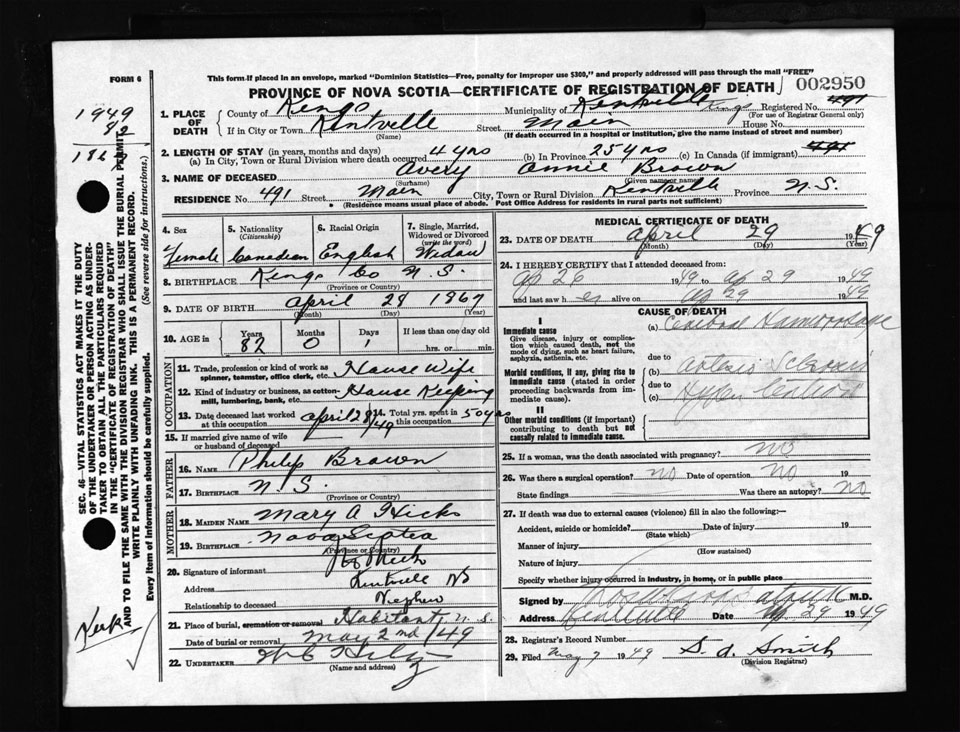 FORM 6
This form if placed in an envelope, marked "Dominion Statistics—Free, penalty for improper use $300," and properly addressed will pass through the mail "FREE"
PROVINCE OF NOVA SCOTIA—CERTIFICATE OF REGISTRATION OF DEATH 002950
1949
82
1867
1. PLACE OF DEATH County of Kings Municipality of Kentville Kings Registered No. 491
(For use of Registrar General only)
If in City or Town Kentville Street Main House No.
(Name) (If death occurred in a hospital or institution, give the name instead of street and number)
2. LENGTH OF STAY (in years, months and days)
(a) In City, Town or Rural Division where death occurred 4 yrs (b) In Province 25 yrs (c) In Canada (if immigrant) 491
3. NAME OF DECEASED Avery Annie Brown
(Surname) (Given name or names)
RESIDENCE No. 491 Street Main City, Town or Rural Division Kentville Province N.S.
(Residence means usual place of abode. Post Office Address for residents in rural parts not sufficient)
4. Sex Female
5. Nationality (Citizenship) Canadian
6. Racial Origin English
7. Single, Married, Widowed or Divorced (write the word) Widow
8. BIRTHPLACE Kings Co N.S.
(Province or Country)
9. DATE OF BIRTH April 28 1867
(Month) (Day) (Year)
10. AGE in Years 82 Months 0 Days 1 If less than one day old hrs. or min.
OCCUPATION
11. Trade, profession or kind of work as spinner, teamster, office clerk, etc. House Wife
12. Kind of industry or business, as cotton-mill, lumbering, bank, etc. House Keeping
13. Date deceased last worked at this occupation April 28/49 14. Total yrs. spent in this occupation 50 yrs
15. If married give name of wife or husband of deceased
FATHER
16. NAME Philip Brown
17. BIRTHPLACE N.S.
(Province or Country)
MOTHER
18. MAIDEN NAME Mary A Hicks
19. BIRTHPLACE Nova Scotia
(Province or Country)
20. Signature of informant
Address Kentville NS
Relationship to deceased Nephew
21. Place of burial, cremation or removal Habitant N.S.
Date of burial or removal May 2nd/49
22. UNDERTAKER
(Name and address)
MEDICAL CERTIFICATE OF DEATH
23. DATE OF DEATH April 29 1949
(Month) (Day) (Year)
24. I HEREBY CERTIFY that I attended deceased from:
Ap 26 1949 to Ap 29 1949
and last saw her alive on Ap 29 1949
CAUSE OF DEATH
I
Immediate cause
Give disease, injury or complication which caused death, not the mode of dying, such as heart failure, asphyxia, asthenia, etc.
(a) Cerebral Hamorrhage
due to
Morbid conditions, if any, giving rise to immediate cause (stated in order proceeding backwards from immediate cause).
(b) Arterio Sclerosis
due to
(c) Hypertension
II
Other morbid conditions (if important) contributing to death but not causally related to immediate cause.
25. If a woman, was the death associated with pregnancy? No
26. Was there a surgical operation? No Date of operation No 19
State findings Was there an autopsy? No
27. If death was due to external causes (violence) fill in also the following:—
Accident, suicide or homicide? Date of injury 19
(State which)
Manner of injury
(How sustained)
Nature of injury
Specify whether injury occurred in industry, in home, or in public place
Signed by M.D.
Address Kentville Date Ap 29 1949
28. Registrar's Record Number
29. Filed May 7 1949 S. A. Smith
(Division Registrar)
SEC. 46—VITAL STATISTICS ACT MAKES IT THE DUTY
OF THE UNDERTAKER OR PERSON ACTING AS UNDER-
TAKER TO OBTAIN ALL THE PARTICULARS REQUIRED
IN THE "CERTIFICATE OF REGISTRATION OF DEATH"
AND TO FILE THE SAME WITH THE DIVISION REGISTRAR WHO SHALL ISSUE THE BURIAL PERMIT
WRITE PLAINLY WITH UNFADING INK. THIS IS A PERMANENT RECORD.
Every item of information should be carefully supplied. (See reverse side for instructions.)